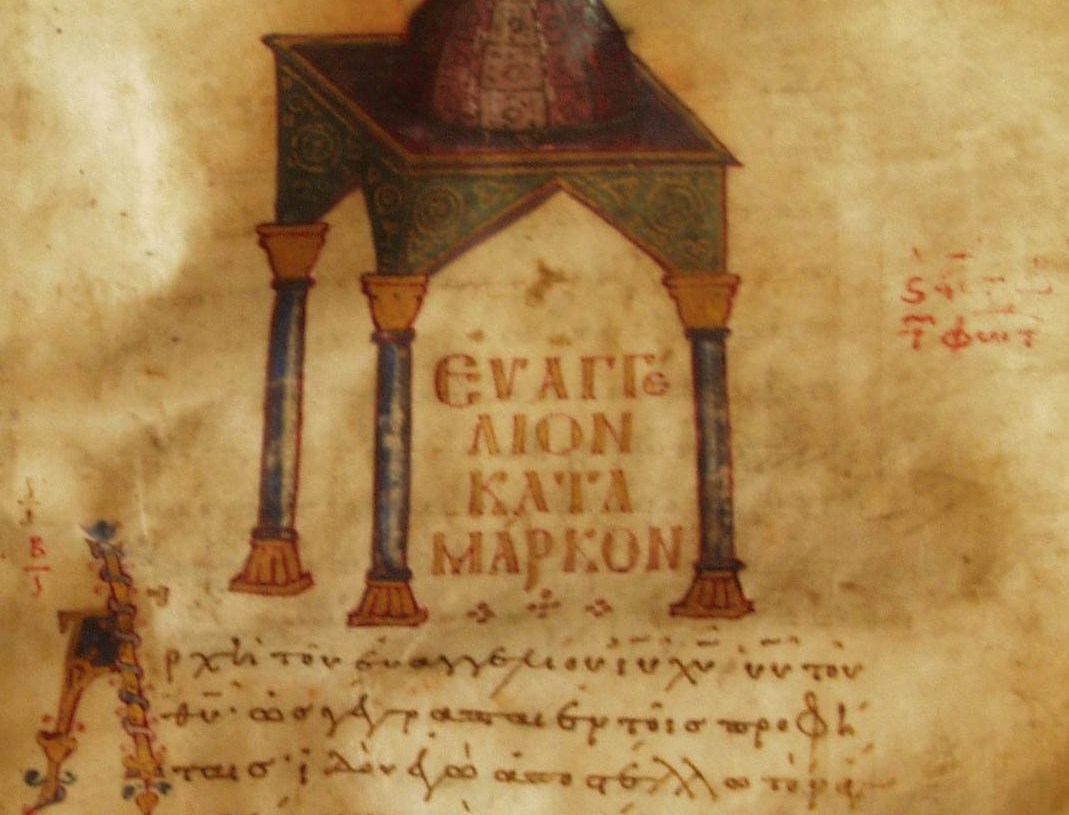 ΕΥΑΓΓΕ
ΛΙΟΝ
ΚΑΤΑ
ΜΑΡΚΟΝ
Ἀρχὴ τοῦ εὐαγγελίου ιυ χυ υυ τοῦ
θυ· ὡς γέγραπται ἐν τοῖς προφή
ταις· ἰδοὺ ἐγὼ ἀποστέλλω τὸν ἄ